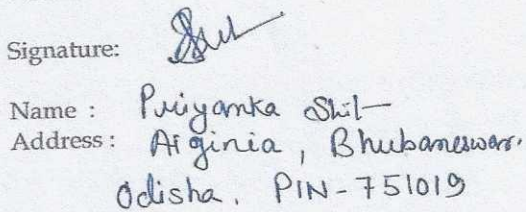 Signature:
Name : Priyanka Shil
Address : Aiginia, Bhubaneswar.
Odisha. PIN-751019